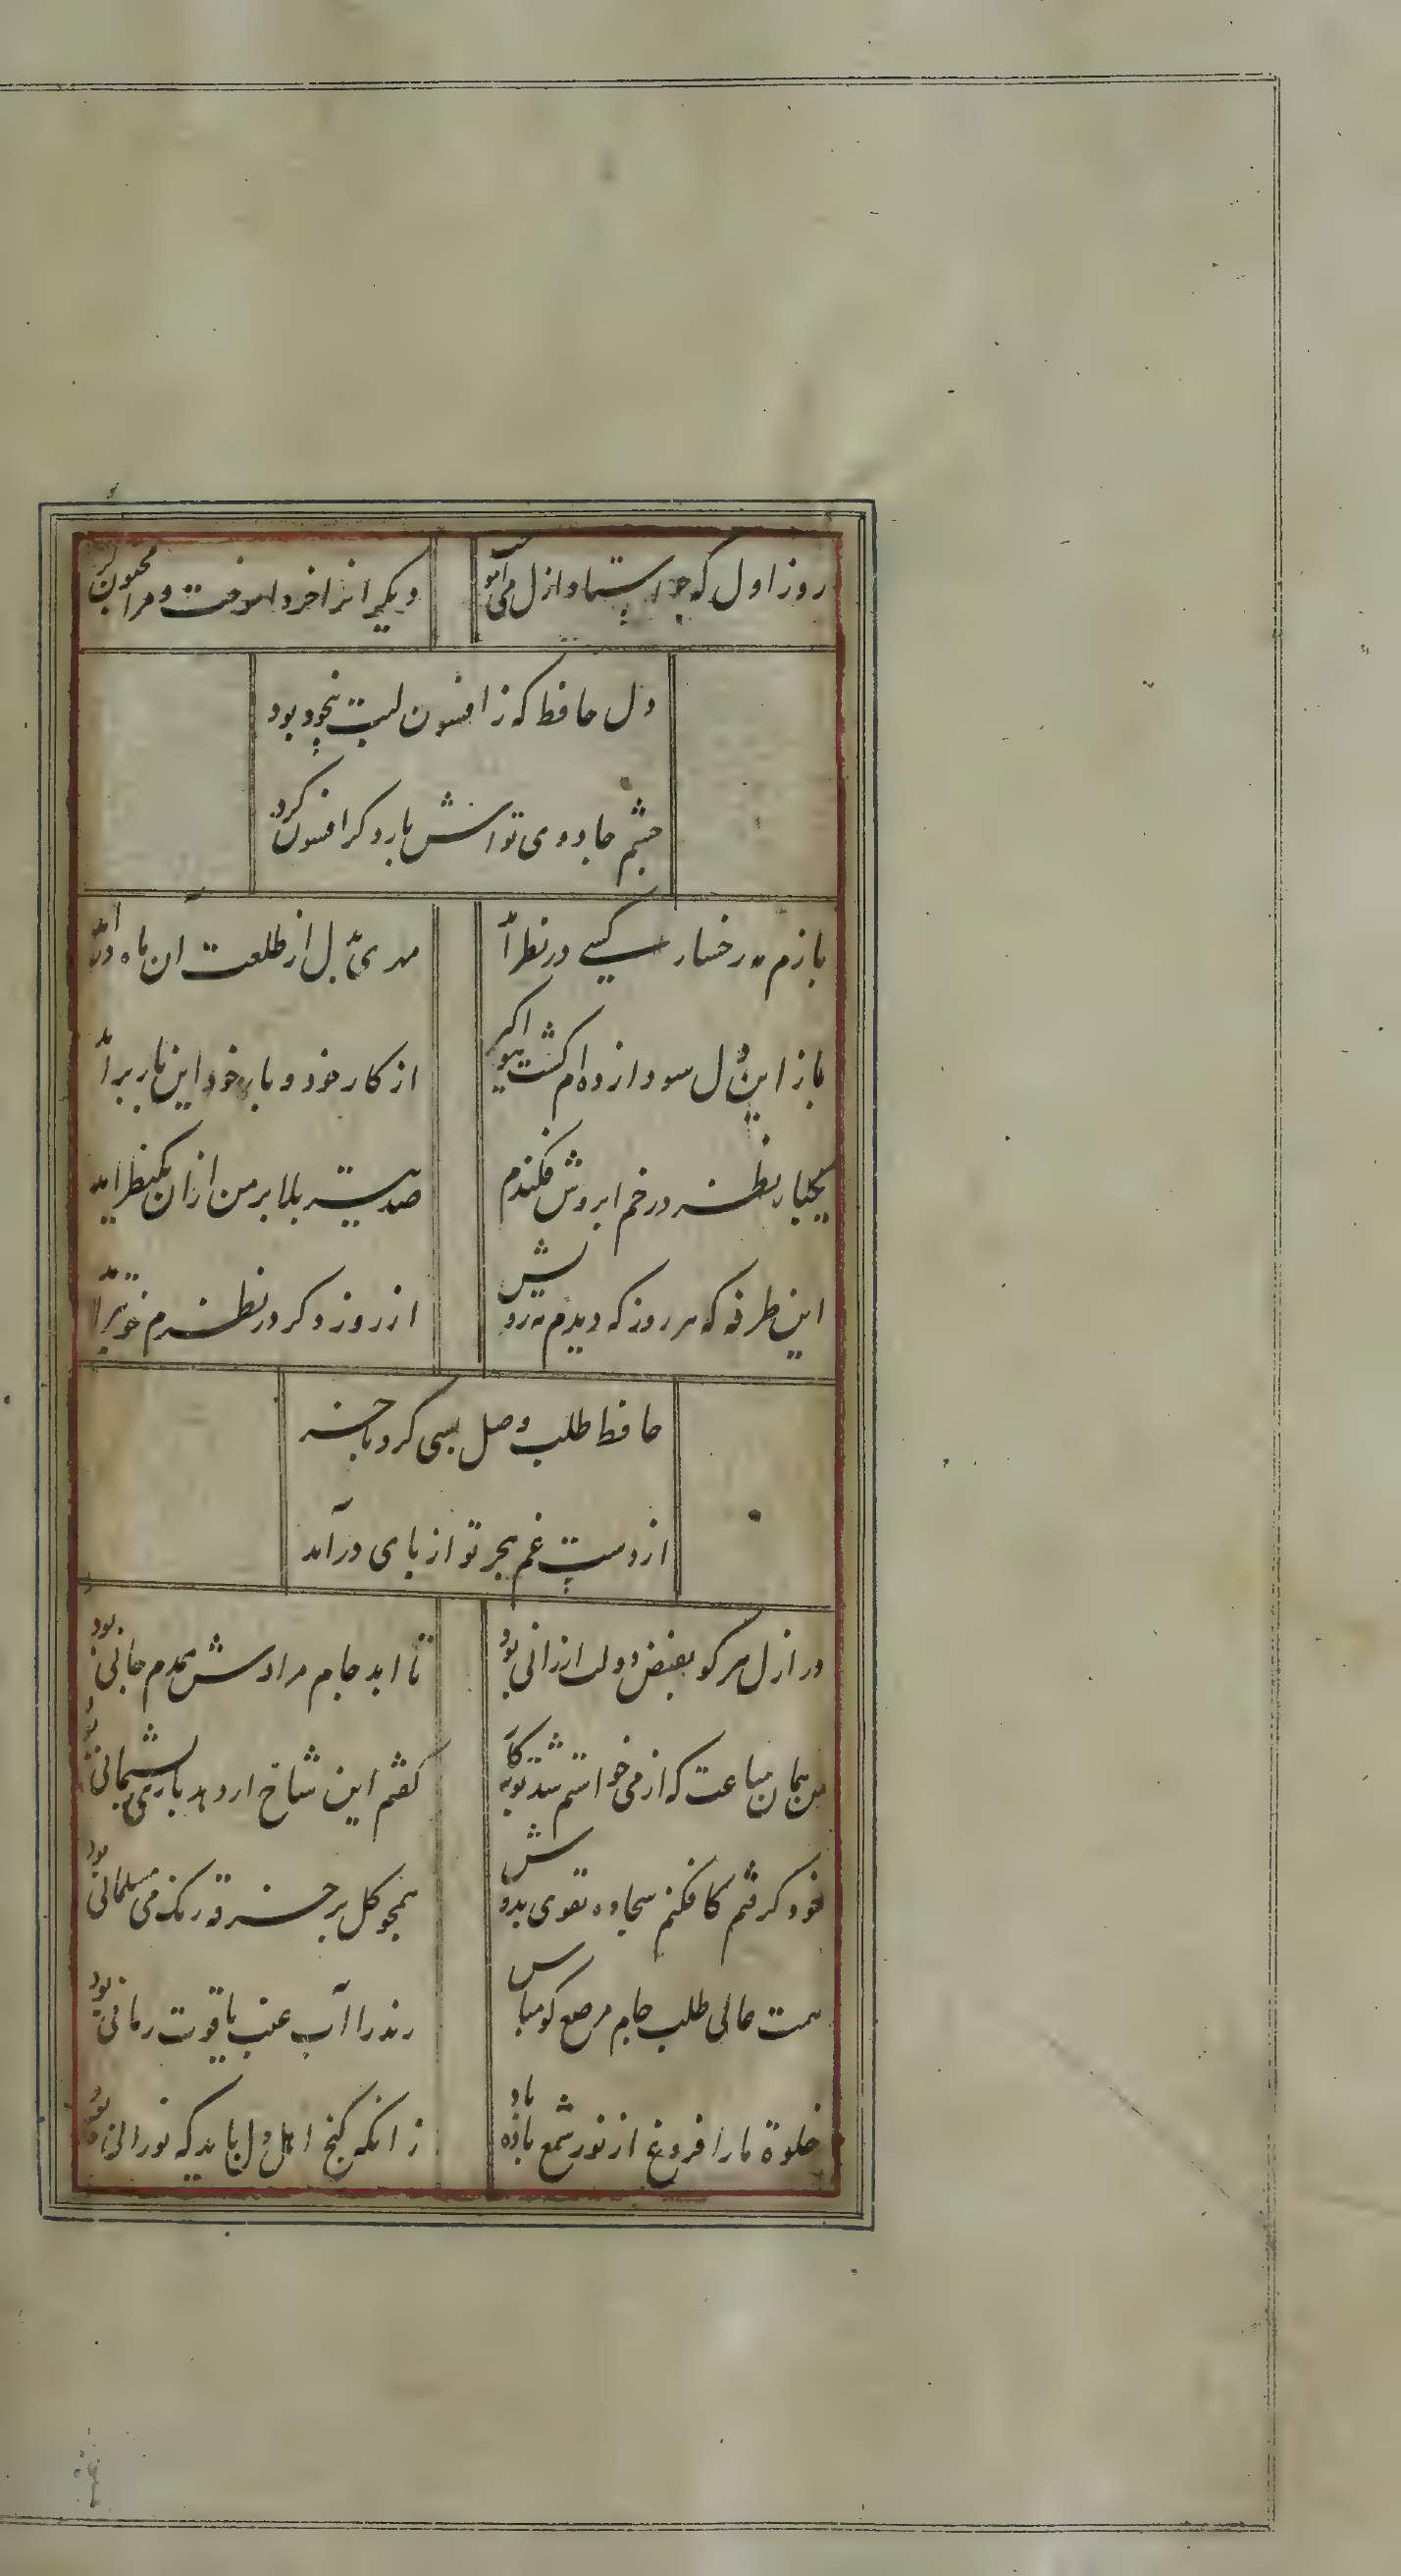 روز اول که چو استاد ازل می آموخت
دیگرانرا خرد آموخت و مرا مجنون کرد
دل حافظ که ز افسون لبت بیخود بود
چشم جادوی تواش بار دگر افسون کرد
بازم مه رخسار کسی در نظر آمد
مهری بدل از طلعت آن ماه در آمد
باز این دل سودازده ام گشت
از کار خود و بار خود این بار بر آمد
یکبار نظر در خم ابروش فکندم
صد تیر بلا بر من از آن یکنظر آمد
این طرفه که هر روز که دیدم مه رویش
از روز دگر در نظرم خوبتر آمد
حافظ طلب وصل بسی کرد باخر
از دست غم هجر تو از پای درآمد
در ازل هر کو بفیض دولت ارزانی بود
تا ابد جام مرادش همدم جانی بود
من همان ساعت که از می خواستم شد توبه کار
گفتم این شاخ ار دهد باری پشیمانی بود
خود گرفتم کافکنم سجاده تقوی بدوش
همچو گل بر خرقه رنک می مسلمانی بود
همت عالی طلب جام مرصع گو مباش
رند را آب عنب یاقوت رمانی بود
خلوة ما را فروغ از نور شمع باده باد
زانکه کنج اهل دل باید که نورانی بود